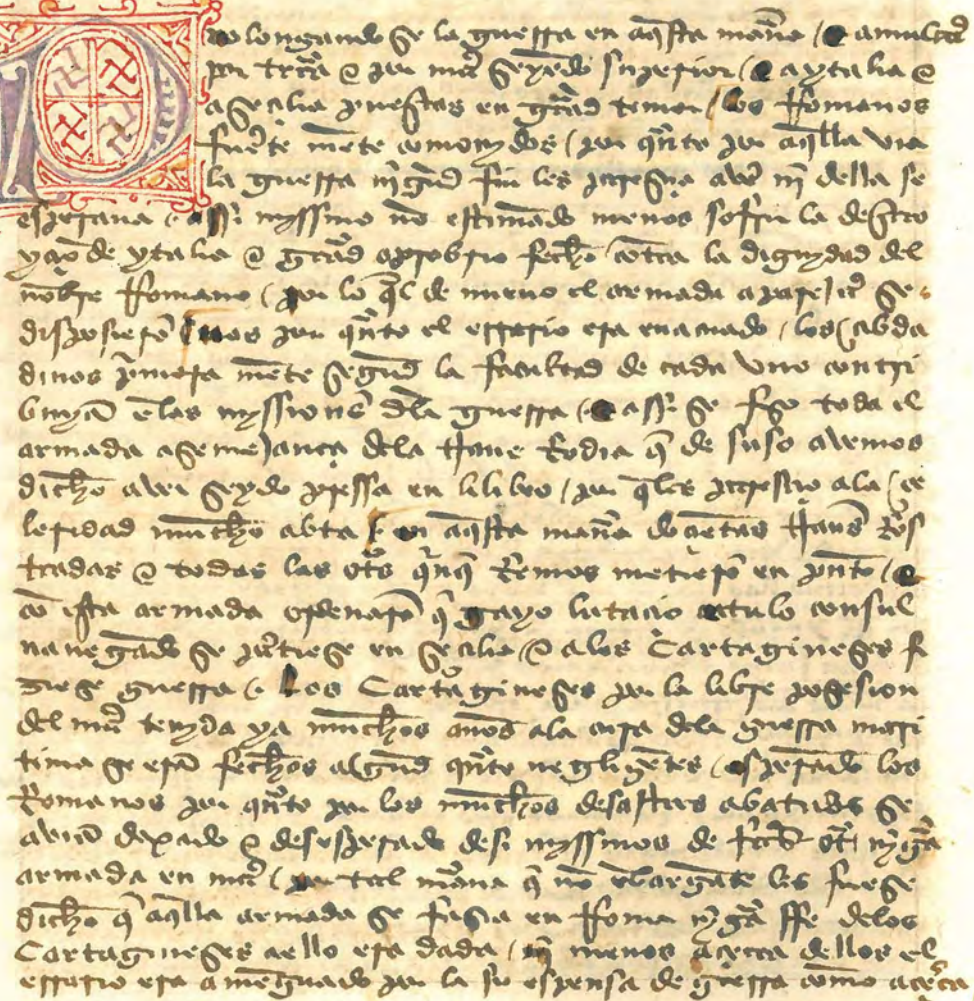 Prolongando se la guerra en aq̃sta mañ̃a / e a muchas
por trr̃a e por mar̃ seyẽdo superior / e a ytalia e
a seçilia puestas en grãd temor / los Romanos
fuerte mẽte comouydos / por quãto por aq̃lla via
la guerra nĩgũd fin les paresçia auer nĩ della se
esperaua / assi myssmo no estimãdo menos sofrir la destru
yçiõ de ytalia e grãd oprobrio fecho cõtra la dignydad del
nõbre Romano / por lo q̃l de nueuo el armada a parejar se
disposierõ / mas por quãto el errario era euacuado / los çibda
dinos prĩmera mẽte segũd la facultad de cada vno contri
buyã ẽlas myssiones dela guerra / e assi se fizo toda el
armada a semejança dela naue Rodia q̃ de suso auemos
dicho auer seydo pressa en lilibeo / por q̃ les paresçio a la çe
leridad mucho abta / en aq̃sta mañ̃a dozientas naues Ros
tradas e todas las otr̃s q̃nq̃ Remos metierõ en pũto / e
cõ esta armada ordenarõ q̃ gayo lutaçio catulo consul
nauegãdo se partiese en seçilia e a los Cartagineses fi
ziese guerra / Los Cartagineses por la libre posesion
del mar̃ tenyda ya muchos años a la cura dela guerra mari
tima se erã fechos algũd quãto negligẽtes / esperãdo los
Romanos por quãto por los muchos desastres abatidos se
auiã dexado e desesperado de si myssmos de fazer otr̃ nĩgũa
armada en mar̃ / por tal mañ̃a q̃ nõ ẽbargãte les fuese
dicho q̃ aq̃lla armada se fazia en Roma nĩgũa ffe delos
Cartagineses a ello era dada / nĩ menos açerca dellos el
errario era amẽguado por la su espensa de guerra como açerca